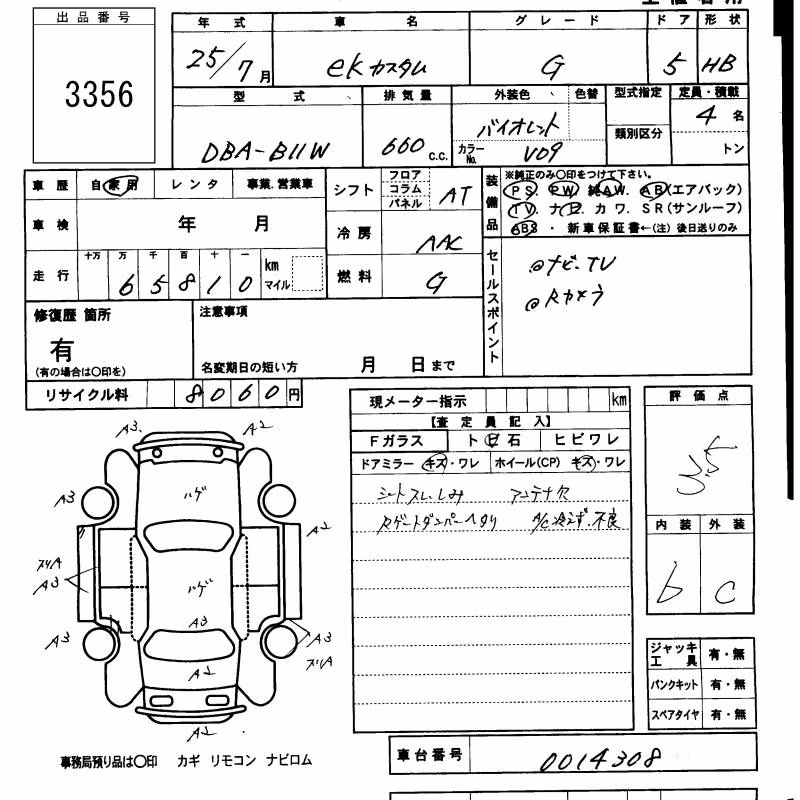 出品番号
3356
年式 車名 グレード ドア 形状
25/7月 ekカスタム G 5 HB
型式 排気量 外装色 色替 型式指定 定員・積載
DBA-B11W 660 c.c. バイオレット 類別区分 4名
カラーNo. V09 トン
車歴 自家用 レンタ 事業.営業車
車検 年 月
走行 十万 万 千 百 十 一 km マイル
6 5 8 1 0
シフト フロア コラム パネル AT
冷房 AAC
燃料 G
装備品 ※純正のみ〇印をつけて下さい。
PS. PW. 純AW. AB(エアバック)
TV. ナビ. カワ. SR(サンルーフ)
ABS ・ 新車保証書←(注) 後日送りのみ
セールスポイント
@ナビ.TV
@Rカメラ
修復歴 箇所
有
(有の場合は〇印を)
注意事項
名変期日の短い方 月 日まで
リサイクル料 8060円
現メーター指示 km
【査定員記入】
Fガラス ト 石 ヒビワレ
ドアミラー キズ・ワレ ホイール(CP) キズ・ワレ
シートスレ.しみ アンテナ欠
Rゲートダンパーヘタリ A/C冷えず.不良
評価点
3.5
内装 外装
b C
ジャッキ 工具 有・無
パンクキット 有・無
スペアタイヤ 有・無
A3 A2
ハゲ
A3
A2
A3
ハゲ
A3
A3
A3
A2
A2
事務局預り品は〇印 カギ リモコン ナビロム
車台番号 0014308